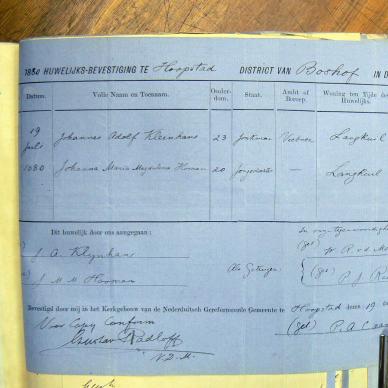 1880 HUWELIJKS-BEVESTIGING TE Hoopstad DISTRICT VAN Boshof IN D
Datum. Volle Naam en Toenaam. Ouder-dom. Staat. Ambt of Beroep. Woning ten Tijde de Huwelijks.
19 Juli Johannes Adolf Kleinhans 23 Jonkman Veeboer Langkuil
1880 Johanna Maria Magdalena Hooman 20 Jongedochter — Langkuil
Dit huwelijk door ons aangegaan :
J. A. Kleynhans
J M M Hooman
Als Getuigen
(get) W. R. v.d. 
(get) P. J.
Bevestigd door mij in het Kerkgebouw van de Nederduitsch Gereformeerde Gemeente te Hoopstad dezen 19
Voor Copy Conform (get) P. A. C.
Gustav Radloff
V.D.M.